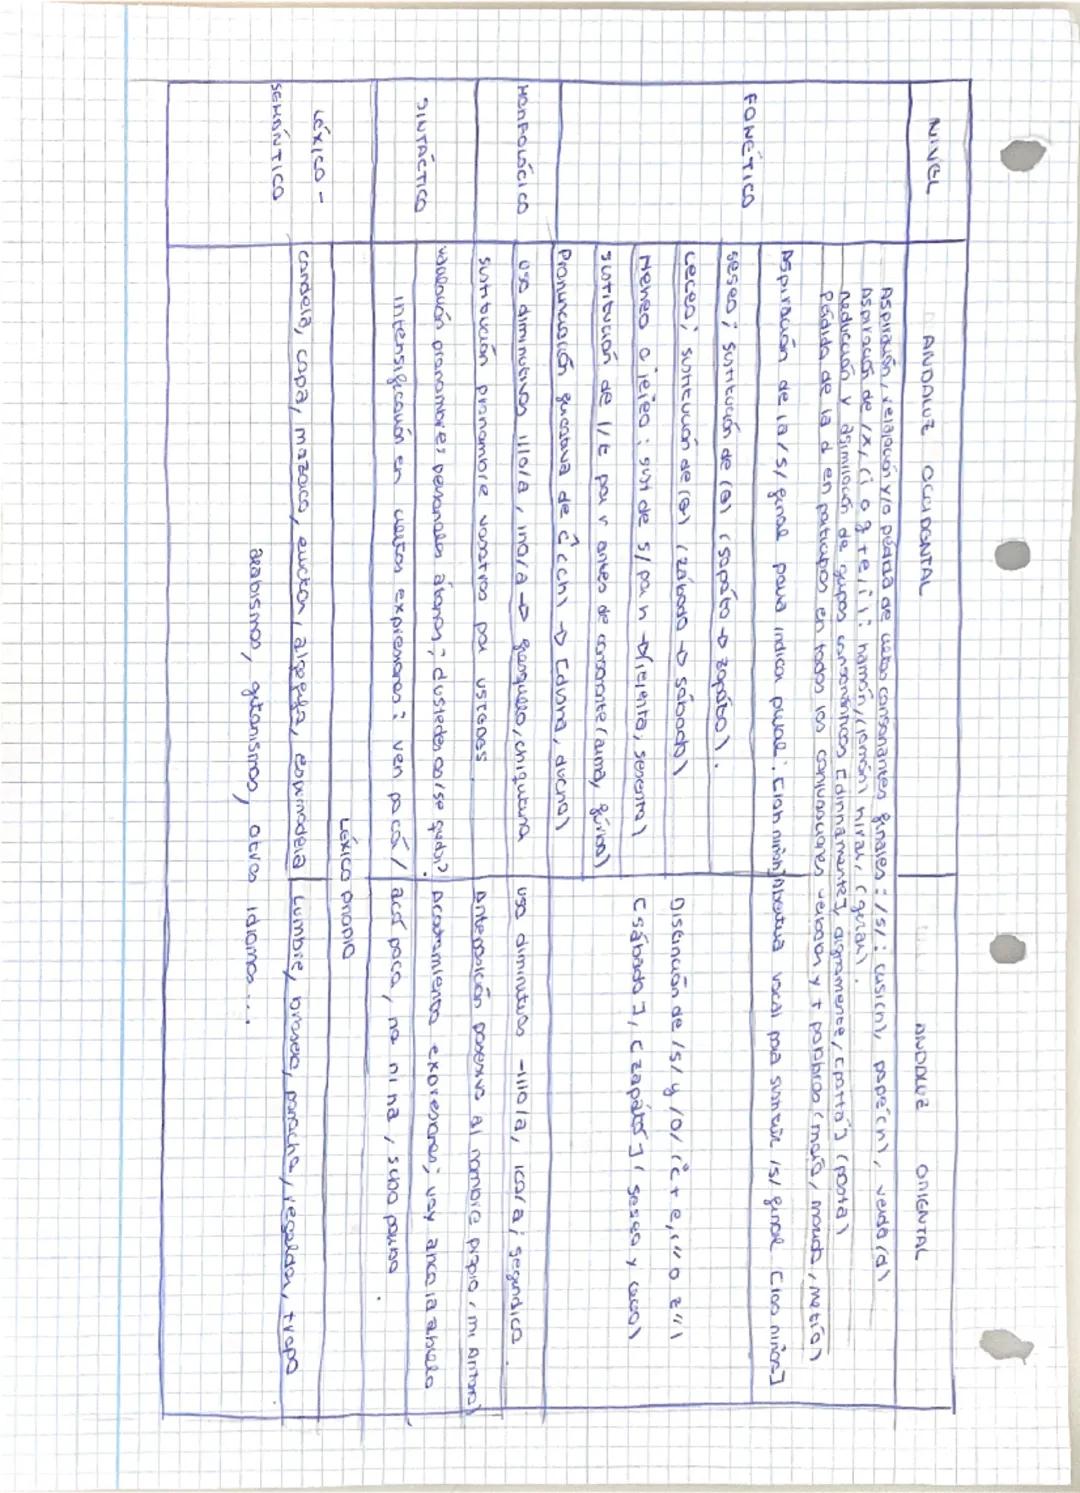 NIVEL
ANDALUZ OCCIDENTAL
ANDALUZ ORIENTAL
FONÉTICO
Aspiración, relajación y/o pérdida de consonantes finales: /s/: cusi(n), pape(n), verda(d)
Aspiración de /x/ (j o g + e, i): hamón, (jamón) hirar, (girar).
Reducción y asimilación de grupos consonánticos [dinnamente], dignamente, [patta] (pasta)
Pédida de la d en paticipios en todas las conjugaciones verbales y + palabras (maio, marido, metío)
Aspiración de la /s/ final para indicar plural: [loh niñoh]
Abertura vocal para sustituir /s/ final [los niños]
seseo; sutitución de (θ) (sopato → zapato).
ceceo; sutitución de (θ) (zábado → sábado)
Heheo o jejeo: sust de s/ por h → (jejenta, sesenta)
Distinción de /s/ y /θ/ (c + e, i o z)
[sábado], [zapato] (seseo y ceceo)
sutitución de l/t por r antes de consonante (arma,
Pronunciación fricativa de ĉ (ch) → [dusha, ducha]
MORFOLÓGICO
uso diminutivos illo/a, ino/a → chiquitina
uso diminutivos -illo/a, ico/a; segundico
sutitución pronombre vosotros por ustedes
Anteposición posesivo al nombre propio, mi Antonio
SINTÁCTICO
variación pronombres personales átonos; ¿ustedes os/se
Acortamientos expresiones; voy anca la abuela
intensificación en ciertas expresiones: ven pacá /
acá paca, na ni na,
LÉXICO - SEMÁNTICO
LÉXICO PROPIO
candela, copa,
Lumbre, brasero,
arabismos, gitanismos, otros idiomas...